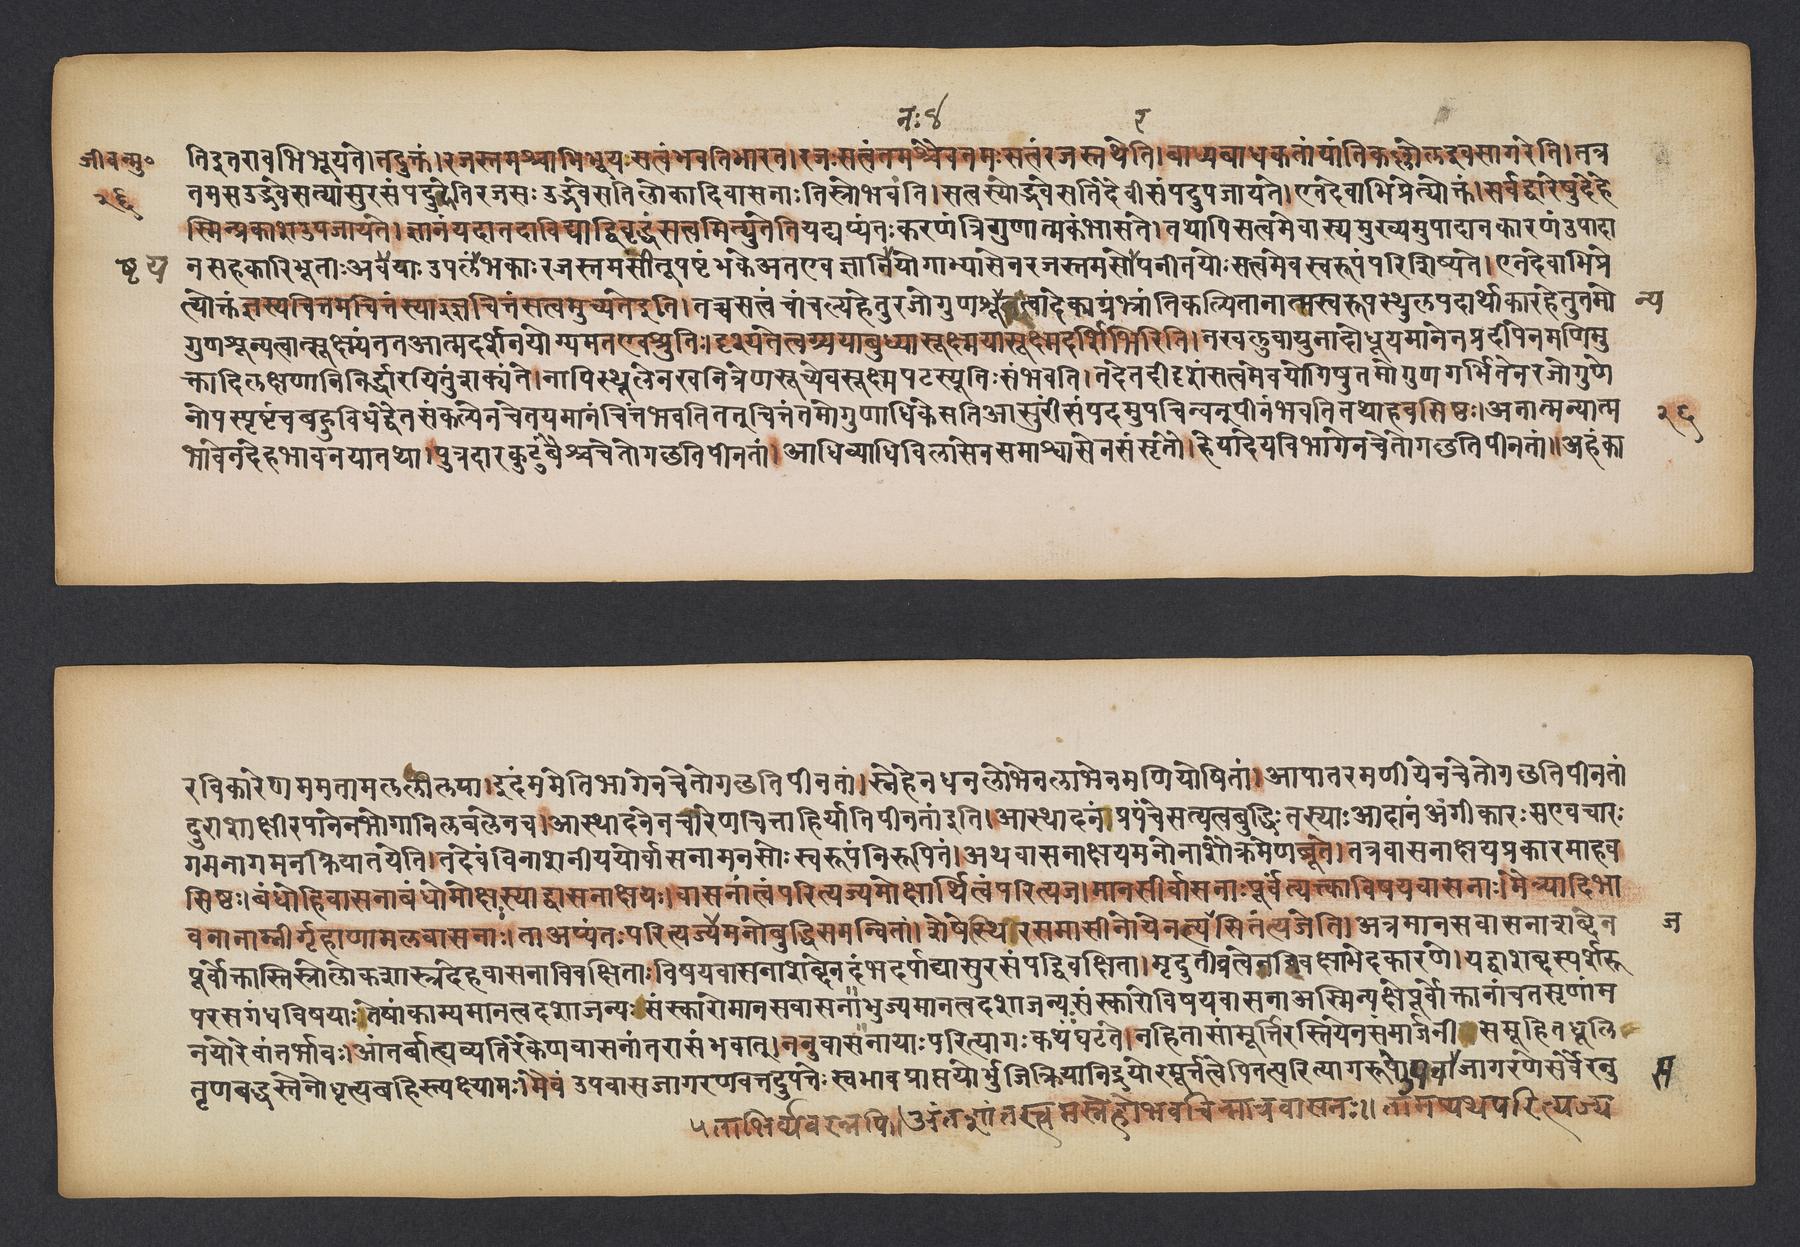 नः४ र
जीवन्मु॰
२६
तिइतरावभिभूयते।तदुक्तं।रजस्तमश्चाभिभूयसत्वंभवतिभारत।रजःसत्वंतमश्चैवतमःसत्वंरजस्तथेति।बाध्यबाधकतांयांतिकल्लोलइवसागरेति।तत्र
तमसउद्भवेसत्यांसुरसंपदुदेतिरजसःउद्भवेसतिलोकादिवासनाःतिस्रोभवंति।सत्वस्योद्भवेसतिदैवीसंपदुपजायते।एतदेवाभिप्रेत्योक्तं।सर्वद्वारेषुदेहे
स्मिन्प्रकाशउपजायते।ज्ञानंयदातदाविद्याद्विवृद्धंसत्वमित्युतेतियद्यप्यंतःकरणंत्रिगुणात्मकंभासते।तथापिसत्वमेवास्यमुख्यमुपादानकारणंउपादा
ष्ट य
नसहकारिभूताःअवयवाःउपष्टंभकाःरजस्तमसीतूपष्टंभकेअतएवज्ञानिनोयोगाभ्यासेनरजस्तमसोपनीतयोःसत्वमेवस्वरूपंपरिशिष्यते।एतदेवाभिप्रे
त्योक्तंज्ञस्यचित्तमचित्तंस्याज्ज्ञचित्तंसत्वमुच्यतेइति।तच्चसत्वंचांचल्यहेतुरजोगुणशून्यत्वादेकाग्रंभ्रांतिकल्पितानात्मस्वरूपस्थुलपदार्थाकारहेतुतमो
न्य
गुणशून्यत्वात्सूक्ष्म्यंततआत्मदर्शनयोग्यमतएवश्रुतिः।दृश्यतेत्वग्र्ययाबुध्यासूक्ष्मयासूक्ष्मदर्शिभिरिति।नखलुवायुनादोधूयमानेनप्रदीपेनमणिमु
क्तादिलक्षणानिनिर्द्धारयितुंशक्यंते।नापिस्थूलेनखनित्रेणसूच्येवसूक्ष्मपटस्यूतिःसंभवति।तदेतदीदृशंसत्वमेवयोगिषुतमोगुणगर्भितेनरजोगुणे
नोपस्पृष्टंचबहुविधद्वैतसंकल्पेनचेतयमानंचित्तंभवतितत्तुचित्तंतमोगुणाधिकेसतिआसुरींसंपदमुपचिन्वत्पीनंभवतितथाहवसिष्ठः।अनात्मन्यात्म
२६
भावेनदेहभावनयातथा।पुत्रदारकुटुंबैश्चचेतोगछतिपीनतां।आधिव्याधिविलासेनसमाश्वासेनसंसृतौ।हेयादेयविभागेनचेतोगछतिपीनतां॥अहंका
रविकारेणममतामललीलया।इदंममेतिभागेनचेतोगछतिपीनतां।स्नेहेनधनलोभेनलाभेनमणियोषितां।आपातरमणीयेनचेतोगछतिपीनतां
दुराशाक्षीरपानेनभोगानिलबलेनच।आस्थादनेनचारेणचित्ताहिर्यातिपीनतांइति।आस्थादनंप्रपंचेसत्यत्वबुद्धिःतस्याःआदानंअंगीकारःसएवचारः
गमनागमनक्रियातयेति।तदेवंविनाशनीययोर्वासनामनसोःस्वरूपंनिरूपितं।अथवासनाक्षयमनोनाशौक्रमेणब्रूते।तत्रवासनाक्षयप्रकारमाहव
सिष्ठः।बंधोहिवासनाबंधोमोक्षस्याद्वासनाक्षयः।वासनांत्वंपरित्यज्यमोक्षार्थित्वंपरित्यज।मानसीर्वासनाःपूर्वंत्यत्त्काविषयवासनाः।मैत्र्यादिभा
वनानाम्नीर्गृहाणामलवासनाः।ताअप्यंतःपरित्यज्यमनोबुद्धिसमन्वितां।शेषेस्थिरसमासीनोयेनत्यसितंत्यजेति।अत्रमानसवासनाशब्देन
ज
पूर्वोक्तास्तिस्रोलोकशास्त्रदेहवासनाविवक्षिताःविषयवासनाशब्देनदंभदर्पाद्यासुरसंपद्विवक्षिता।मृदुतीव्रत्वेतद्विवक्षाभेदकारणे।यद्वाशब्दस्पर्शरू
परसगंधविषयाःतेषांकाम्यमानत्वदशाजन्यःसंस्कारोमानसवासनाभुज्यमानत्वदशाजन्यःसंस्कारोविषयवासनाअस्मिन्पक्षेपूर्वोक्तानांचतसृणांम
नयोरेवांतर्भावः।आंतर्बाह्यव्यतिरेकेणवासनांतरासंभवात्।ननुवासनायाःपरित्यागःकथंघटते।नहितासांमूर्तिरस्तियेनसंमार्जनीसमूहितधूलि
तृणबद्धस्तेनोधृत्यबहिस्त्यक्ष्यामः।मैवंउपवासजागरणवत्तदुपपत्तेःस्वभावप्राप्तयोर्भुजिक्रियानिद्रयोरमूर्तत्वेपितत्परित्यागरूपेजागरणेसर्वैरनु
स
५ताभिर्व्यवहरन्नपि।अंतःशांतस्त्वमस्नेहोभवचिन्मात्रवासनः॥तामप्यथपरित्यज्य